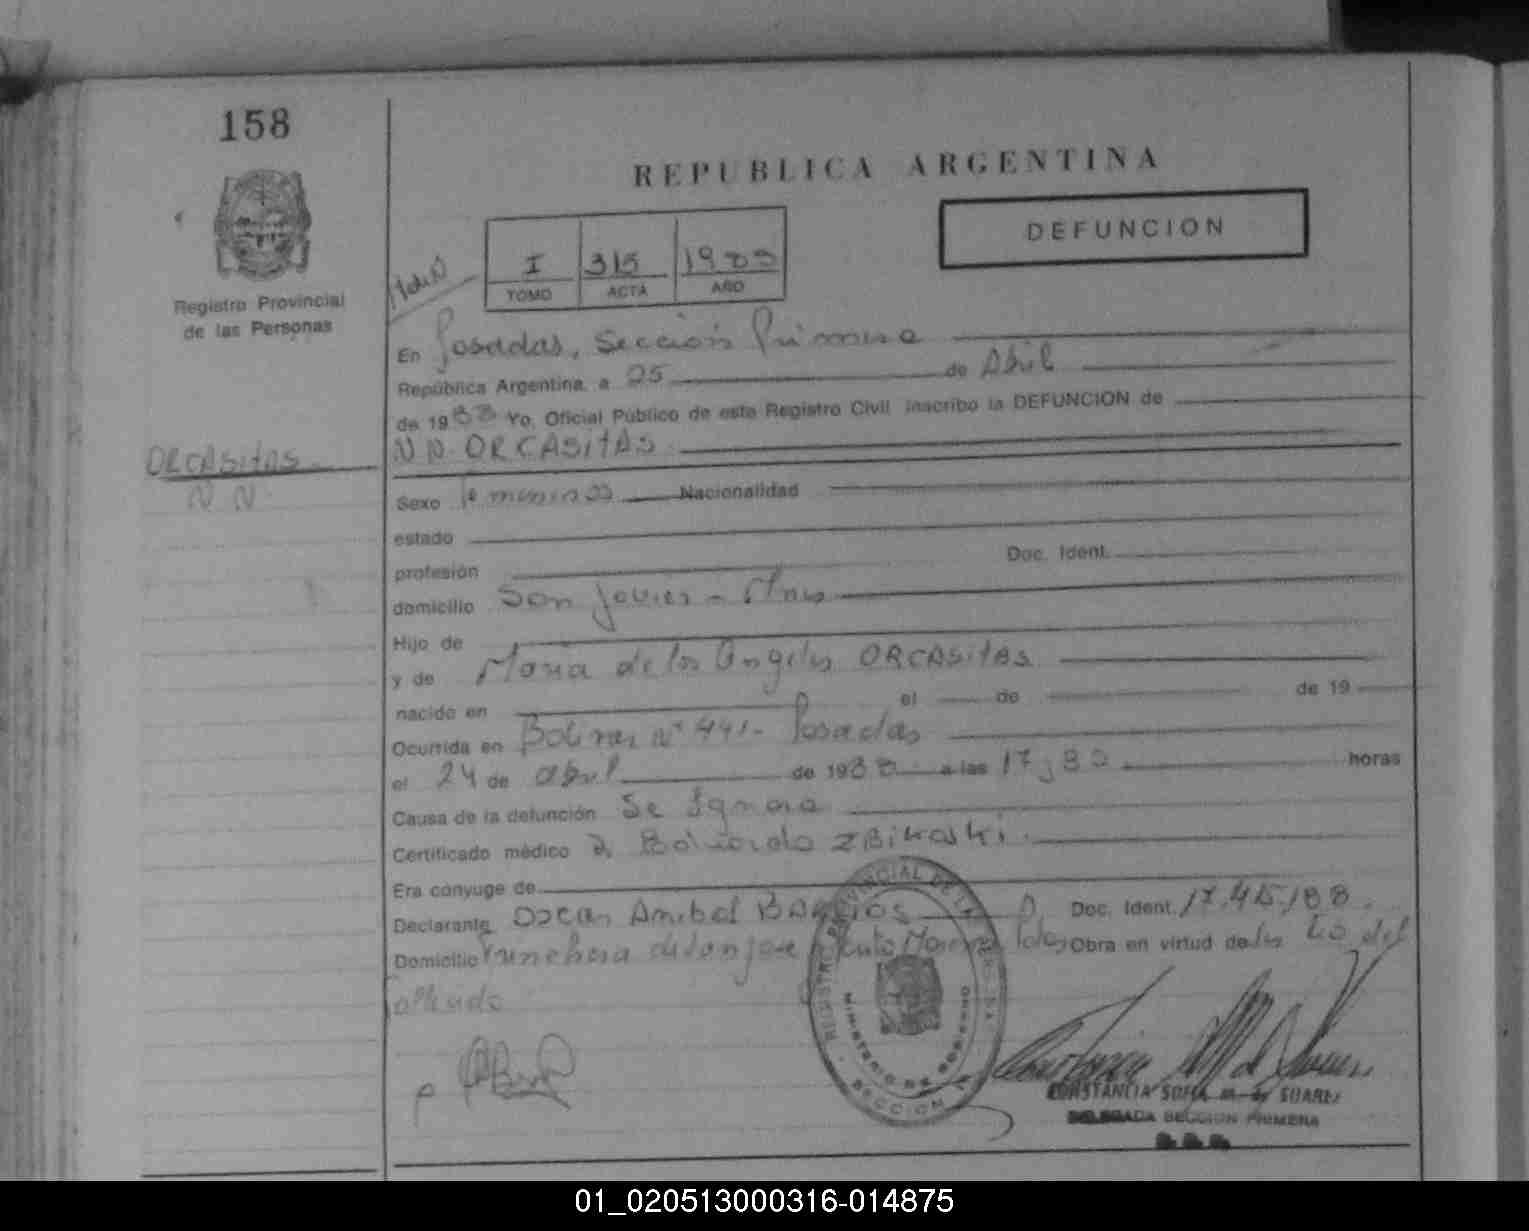 158
REPUBLICA ARGENTINA
DEFUNCION
I 315
TOMO ACTA AÑO
Registro Provincial
de las Personas
En Posadas, Sección Primera
República Argentina, a 25 de Abril
de 1988 Yo, Oficial Público de este Registro Civil inscribo la DEFUNCION de
N N. ORCASITAS.
ORCASITAS
N N.
Sexo femenino Nacionalidad
estado
profesión Doc. Ident.
domicilio San Javier - Mnes
Hijo de
y de Maria de los Angeles ORCASITAS
nacido en el de de 19
Ocurrida en Bolivar Nº 441 - Posadas
el 24 de abril de 1988 a las 17,30 horas
Causa de la defunción Se Ignora
Certificado médico Dr. Eduardo ZBIKOSKI.
Era cónyuge de
Declarante Oscar Anibal BARRIOS Doc. Ident. 17.415.188.
Domicilio Trinchera de San José Moreno Pdas Obra en virtud de
REGISTRO PROVINCIAL DE LAS PERSONAS
MINISTERIO DE GOBIERNO
SECCION
CONSTANCIA SOFIA M. de SUAREZ
DELEGADA SECCION PRIMERA
01_020513000316-014875